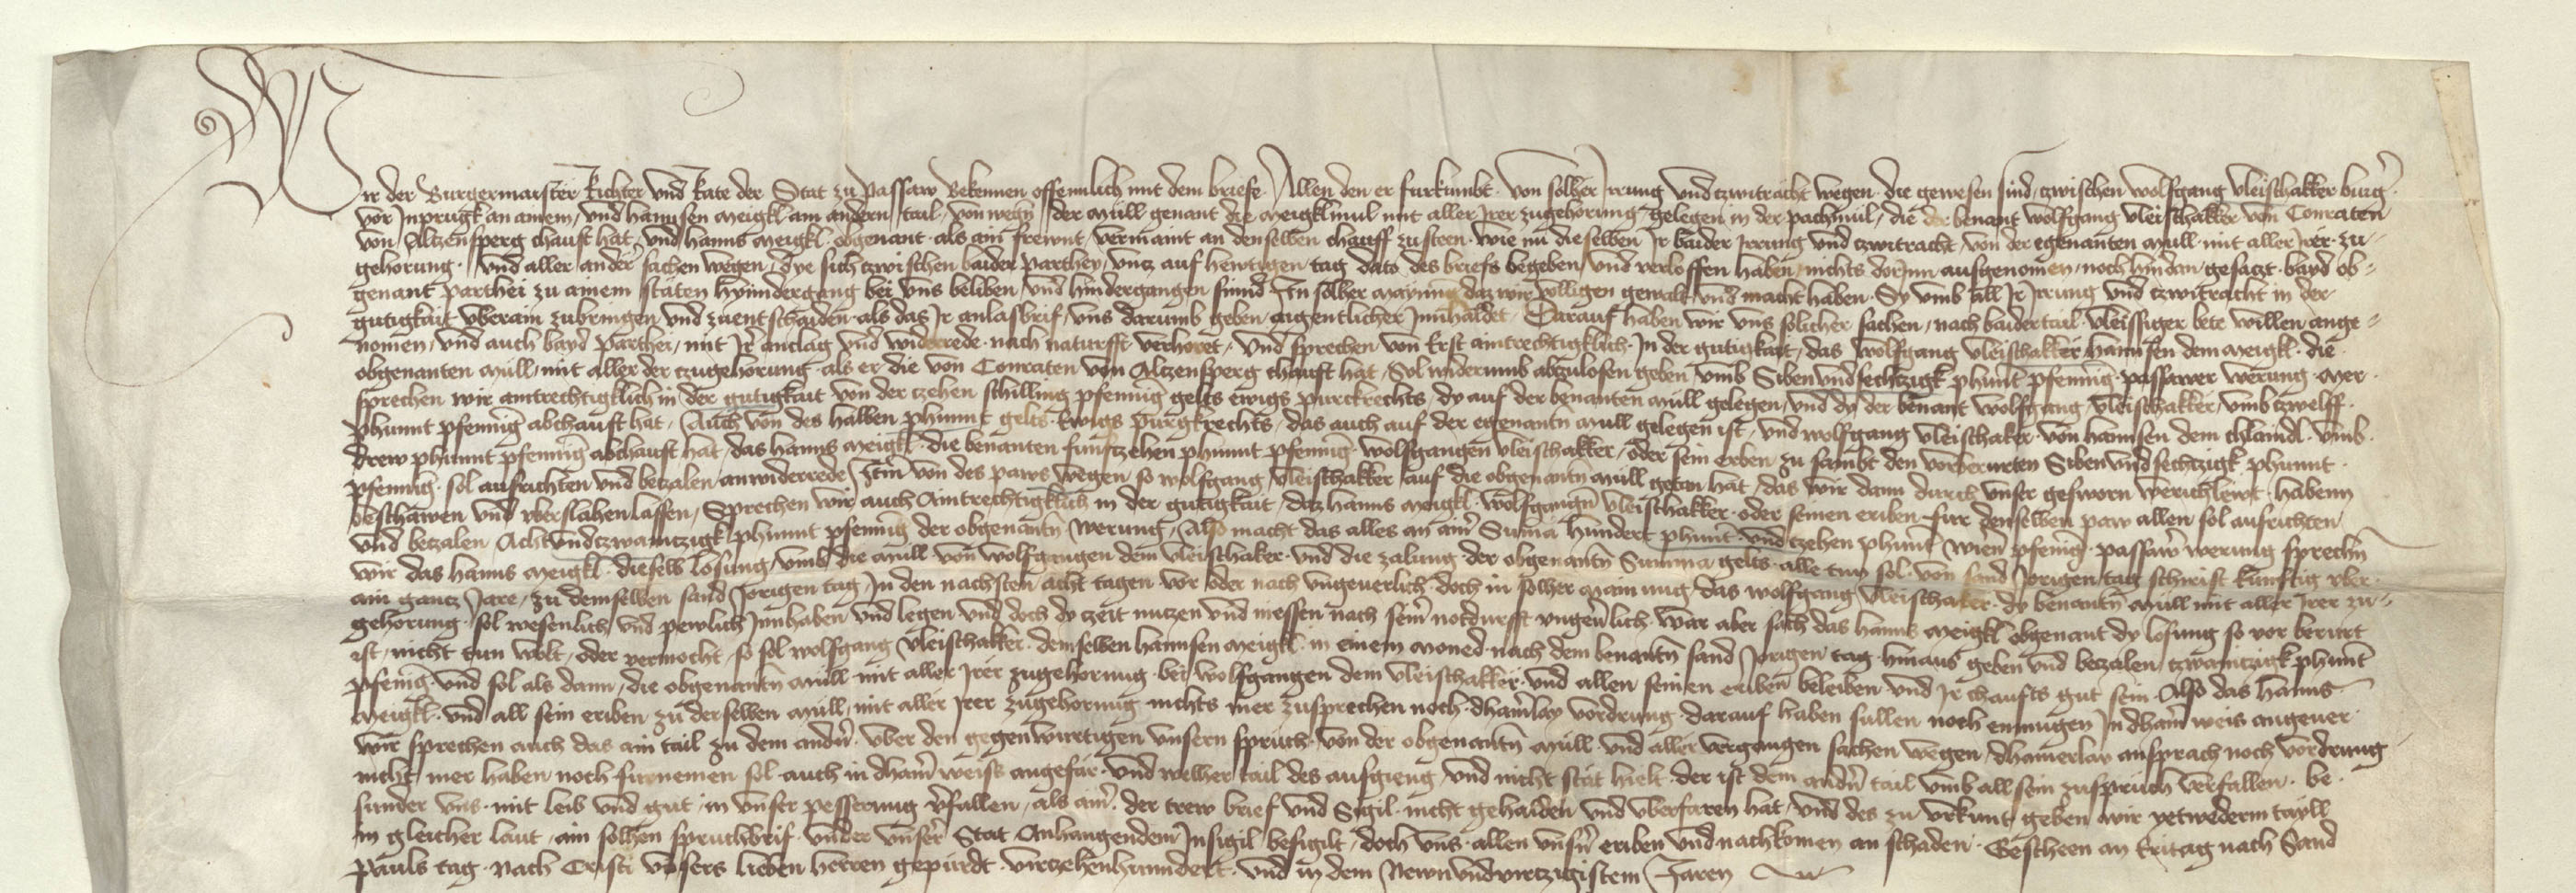 Wir der Burgermaister Richter und Rate der Stat zu Passaw Bekennen offennlich mit dem briefe Allen den er furkumbt von solher Irrung und tzwitrácht wegen die gewesen sind tzwischen Wolfgang vleischakker burg̃
vor Inprugk an ainem, und hannsen Meigkl am andern tail, von wegñ der Müll genant die Meigklmul mit aller Irer zugehorung gelegen in der pachmul, die der benant Wolfgang vleischakker von Conraten
von Altzensperg chauft hat, und hanns Meigkl obgenant als ain frewnt, vermaint an denselben chauff zusteen. Wie nu dieselben Ir baider Irrung und tzwitracht, von der egenanten Mull mit aller Irer zu-
gehorung, und aller ander sachen wegen, dye sich tzwischen baider parthey, untz auf hewtigen tag dato des briefs begeben und verloffen haben, nichts dorinn ausgenomen, noch hindan gesatzt, bayd ob-
genant parthei zu ainem státen hynndergang bei uns beliben und hindergangen sinnd In solher maynung daz wir volligen gewalt und macht haben. Sy umb all Ir Irrung und tzwitracht in der
gutigkait uberain zubringen und zuentschaiden als das Ir anlasbrif, uns darumb geben aigentlicher Innhaldet. Darauf haben wir uns solicher sachen, nach baider tail vleissiger bete willen ange-
nomen, und auch bayd parthei, mit Ir anclag und widerrede nach naturfft verhoret, Und sprechen von Erst aintrechtigklich In der gutigkait, das Wolfgang vleischakker hannsen dem Meigkl die
obgenanten Müll, mit aller der tzugehorung als er die von Conraten von Altzensperg chauft hat, Sol widerumb abzulosen geben umb Siben und sechtzigk phunt pfenning passawer werung. Mer
sprechen wir aintrechtigklich in der gutigkait von der tzehen schilling pfennig gelts ewigs purckrechts, dy auf der benanten Mull gelegen, und dy der benant Wolfgang, vleischakker, umb tzwelff
phunnt pfennig abchauft hat, Auch von des halben phunnt gelts Ewigs purgkrechts, das auch auf der egenantn Mull gelegen ist, und Wolfgang vleischaker von hannsen dem chlaindl umb
drew phunnt pfennig abchauft hat, das hanns Meigkl die benanten funftzehen phunnt pfennig Wolfgangen vleischakker, oder sein erben zu sambt den vorberurten Siben und sechtzigk phunnt
pfennig sol ausrichten und betzalen an widerrede Item von des paws wegen so Wolfgang vleischakker auf die obgenantn Mull getan hat, das wir dann durch unser gesworn werichlewt habenn
beschawen und uberslahen lassen, Sprechen wir auch Aintrechtigklich in der gutigkait, daz hanns Meigkl Wolfgangn vleischakker oder seinen eriben fur denselben paw allen sol ausrichten
und betzalen Acht und tzwaintzigk phunnt pfennig der obgenantn werung, Also macht das alles an ainer Suma hundert phunt und tzehen phunt wienn̄ pfenig passawr werung sprechn
wir das hanns Meigkl dieselb losung, umb die Mull von Wolfgangen dem vleischaker und die zalung der obgenantn Summa gelts alle tun sol von sand Jorigen tag schirist kunftig uber
ain gantz Jare, zu demselben sand Jorigen tag, In den nachsten acht tagen vor oder nach ungeuerlich doch in solher mainung, das Wolfgang vleischaker dy benantn Mull mit aller Irer zu-
gehorung sol wesenlich und pewlich Innhaben und legen und doch dy tzeit nutzen und niessen nach seinr notdurfft ungeuerlich. War aber sach das hanns Meigkl obgenant dy losung so vor berurt
ist, nicht tun wolt, oder vermocht, so sol Wolfgang vleischakker demselben hannsen Meigkl in einem moned nach dem benantn sand Jorigen tag hinaus geben und betzalen tzwaintzigk phunt
pfenig und sol als dann, die obgenantn Mull mit aller Irer zugehorung bei Wolfgangen dem vleischakker und allen seinen eriben beleiben und Ir chaufts gut sein. Also das hanns
Meigkl und all sein eriben zu derselben Mull, mit aller Irer zugehorung nichts mer zusprechen noch dhainerlay vordrung darauf haben sullen noch enmugen In dhain weis angeuer
Wir sprechen auch das ain tail zu dem andern uber den gegenwurtigen unsern spruch von der obgenantn Mull und aller vergangen sachen wegen, dhainerlay ansprach noch vordrung
nicht mer haben noch furnemen sol auch in dhain weiss angefár. Und welher tail des ausgieng und nicht stát hielt der ist dem andern tail umb all sein zuspruch verfallen. be-
sunder uns mit leib und gut in unser pesserung verfallen, als ainer der trew brief und Sigil nicht gehalden und uberfaren hat, und des zu urkunt geben wir yetwederm tayll
in gleicher laut ain solhen spruchbrif under unser Stat Anhangendem Insigil besigilt, doch uns allen unsern eriben und nachkomen an schaden. Gescheen an Eritag nach Sand
Pauls tag nach Cristi unsers lieben herren gepurdt viertzehenhundert und in dem Newnundviertzigistem Jaren